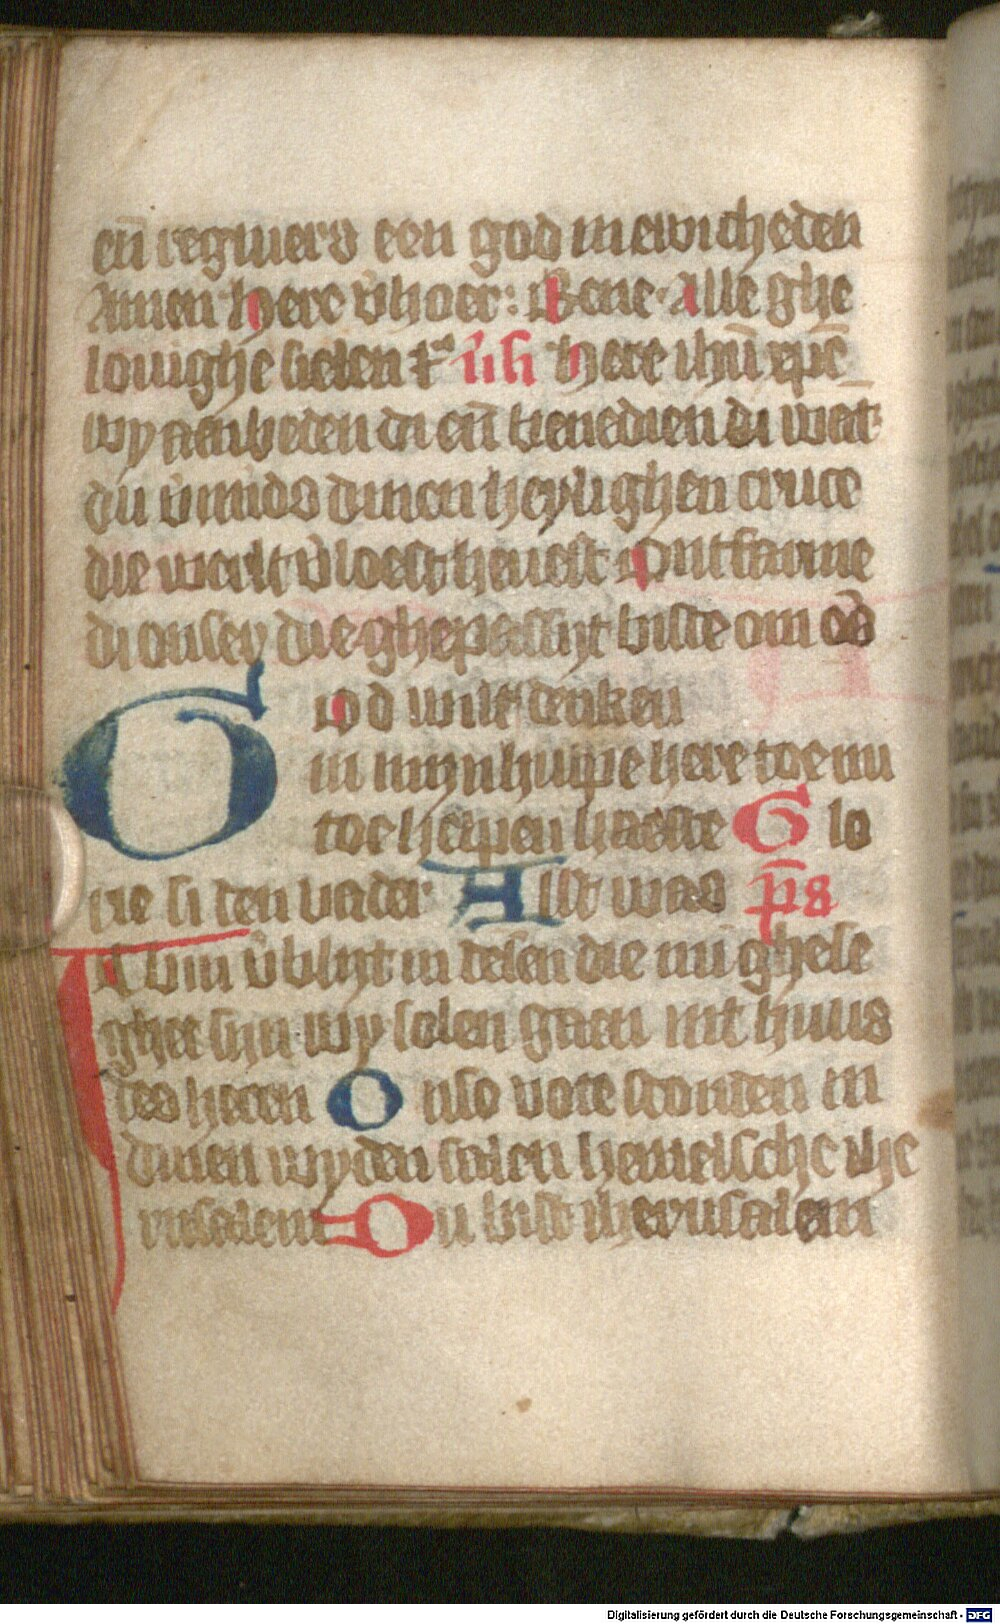 en̄ regniers een god in ewicheden
Amen Here v̄hoer: Bene· Alle ghe
louighe sielen tc̄ v̄si Here ihū xp̄e
wy aenbeden di en̄ benedien di wat
du v̄mids dinen heylighen cruce
die werlt v̄loest heuest Ontfarme
di onser die ghepassijt biste om os̄
God wilt denken
in mijn hulpe here toe mi
toe helpen haeste Glo
rie si den vader Alst was ps̄
Ic bin v̄blijt in desen die mi ghese
ghet sijn wy solen gaen int huus
des heren Onse vote stonden in
dinen wyden salen hemelsche ihe
rusalem Du bist iherusalem
Digitalisierung gefördert durch die Deutsche Forschungsgemeinschaft - DFG